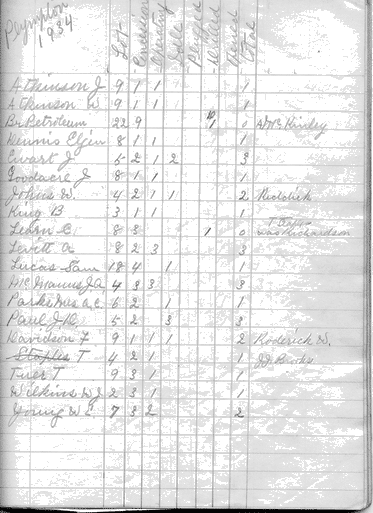 Plympton
1934
Lot Concession Country Sale Plugged Total
Atkinson J 9 1 1 1
Atkinson W 9 1 1 1
Br Petroleum 22 9 1 0
Dennis Elgin 8 1 1 1
Ewart J 5 2 1 2 3
Goodacre J 8 1 1 1
Johns W. 4 2 1 1 2 Reddick
King B 3 1 1 1
C 8 3 1 0 was Richardson
Levitt A 8 2 3 3
Lucas Sam 18 4 1 1
McManus J A 4 3 3 3
Parks Mrs A.C. 6 2 1 1
Paul J R 5 2 3 3
Davidson F 9 1 1 1 2 Roderick W.
Staples T 4 2 1 1 J.D. Brooks
Tyler T 9 3 1 1
Wilkins W J 2 3 1 1
Young W E 7 3 2 2